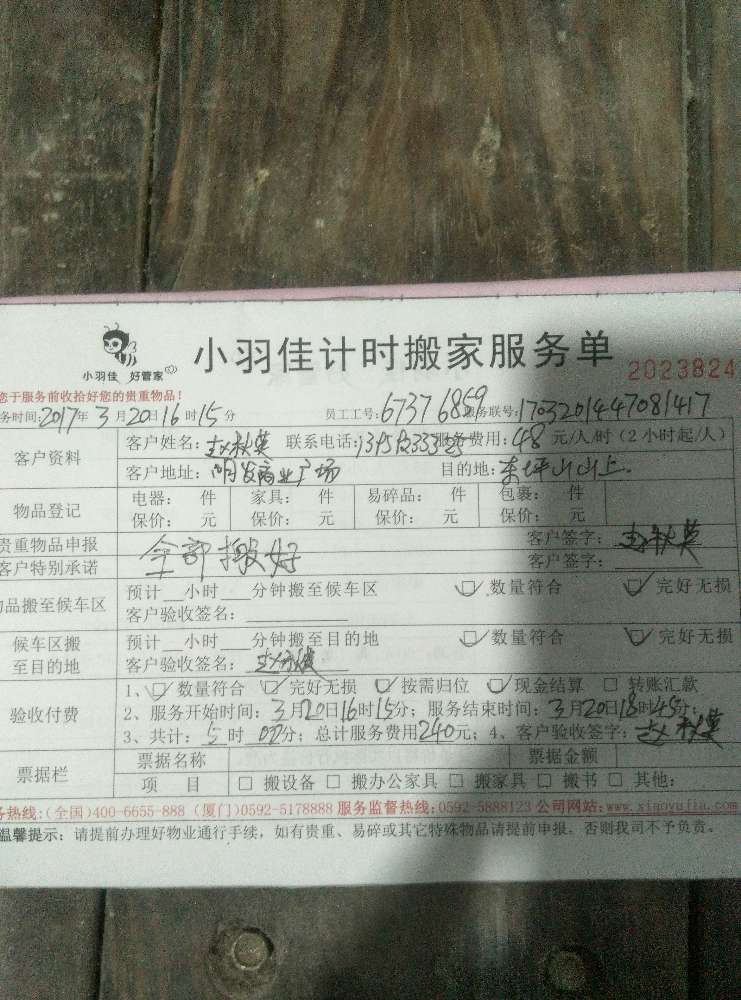 小羽佳 好管家
小羽佳计时搬家服务单
2023824
您于服务前收拾好您的贵重物品!
务时间:2017年3月20日16时15分 员工工号:6737 6859 服务联号:1703201447081417
客户资料
客户姓名:赵秋英 联系电话: 服务费用:48元/人/时(2小时起/人)
客户地址:明发商业广场 目的地:东坪山山上
物品登记
电器: 件 家具: 件 易碎品: 件 包裹: 件
保价: 元 保价: 元 保价: 元 保价: 元
贵重物品申报 客户签字:赵秋英
客户特别承诺 全部搬好 客户签字:
物品搬至候车区
预计__小时___分钟搬至候车区 数量符合 完好无损
客户验收签名:
候车区搬至目的地
预计__小时___分钟搬至目的地 数量符合 完好无损
客户验收签名:赵秋英
验收付费
1、数量符合 完好无损 按需归位 现金结算 转账汇款
2、服务开始时间:3月20日16时15分;服务结束时间:3月20日18时45分;
3、共计:5时00分;总计服务费用240元;4、客户验收签字:赵秋英
票据栏
票据名称 票据金额
项 目 搬设备 搬办公家具 搬家具 搬书 其他:
务热线:(全国)400-6655-888 (厦门)0592-5178888 服务监督热线:0592-5888123 公司网站:www.xiaoyujia.com
温馨提示:请提前办理好物业通行手续,如有贵重、易碎或其它特殊物品请提前申报,否则我司不予负责。